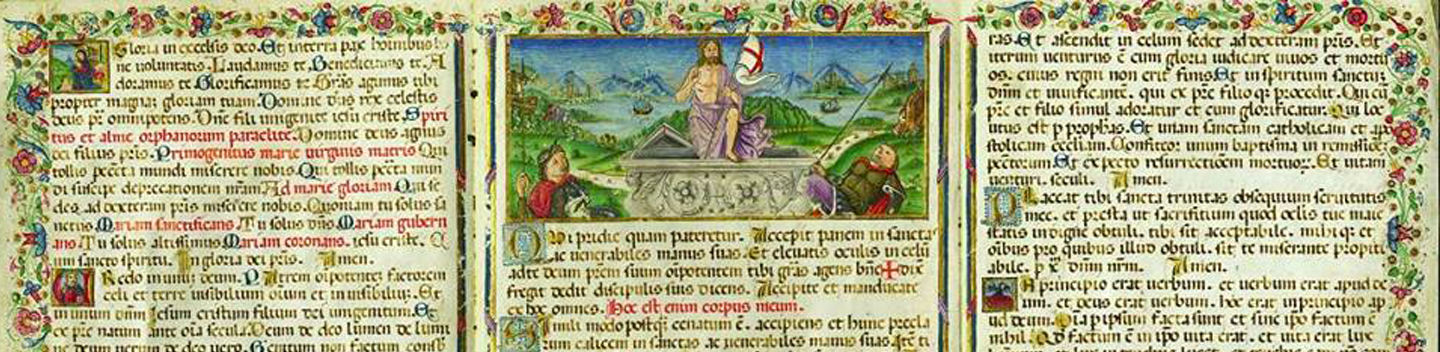 Gloria in excelsis deo. Et in terra pax hominibus bo
ne voluntatis. Laudamus te. Benedicimus te. A
doramus te. Glorificamus te. Grãs agimus tibi
propter magnaʒ gloriam tuam. Domine dẽs rex celestis
deus pr̃ omnipotens. Dñe fili unigenite iesu christe. Spiri
tus et alme orphanorum paraclite. Domine deus agnus
dei filius pr̃is. Primogenitus marie virginis matris. Qui
tollis pecc̃ta mundi miserere nobis. Qui tollis pecc̃ta mun
di suscipe deprecationem nr̃am. Ad marie gloriam. Qui se
des ad dexteram pr̃is miserere nobis. Quoniam tu solus sa
nctus Mariam sanctificans. Tu solus dñs. Mariam gubern
ans. Tu solus altissimus Mariam coronans. iesu christe. C
um sancto spiritu. In gloria dei pr̃is. Amen.
Credo in unuʒ deum. Patrem oĩpotenteʒ factorem
celi et terre visibilium oĩum et invisibiliuʒ. Et
in unum dñm iesum cristum filium dei unigenitum. Et
ex pr̃e natum ante oĩa secula. Deum de deo lumen de lumi
ne deum verum de deo vero. Genitum non factum consb̃
Qui pridie quam pateretur. Accepit panem in sanctas
ac venerabiles manus suas. Et elevatis oculis in celũ
ad te deum pr̃em suum oĩpotentem tibi grãs agens bñe✠dix̃
fregit dedit discipulis suis dicens. Accipite et manducate
ex hoc omnes. Hoc est enim corpus meum.
Simili modo postq̃ʒ cenatum ẽ. accipiens et hunc precla
rum calicem in sanctas ac venerabiles manus suas. Ite ti
ras. Et ascendit in celum sedet ad dexteram pr̃is. Et
iterum venturus ẽ cum gloria iudicare vivos et mortu
os. cuius regni non erit finis. Et in spiritum sanctuʒ
dñm et vivificantẽ. qui ex pr̃e filioqʒ procedit. Qui cũ
pr̃e et filio simul adoratur et cum glorificatur. Qui loc
utus est p prophãs. Et unam sanctam catholicam et apo
stolicam eccl̃iam. Confiteor unum baptisma in remissiõeʒ
pecc̃torum. Et expecto resurrectiõem mortuoꝝ. Et vitam
venturi. seculi. Amen.
Placeat tibi sancta trinitas obsequium servitutis
mee. et presta ut sacrifitium quod oc̃lis tue maie
statis indigne obtuli. tibi sit acceptabile. mihi qʒ et
oĩbus pro quibus illud obtuli. sit te miserante propiti
abile. p xp̃m dñm nr̃m. Amen.
In principio erat verbum. et verbum erat apud de
um. et deus erat verbum. hoc erat in principio ap
ud deum. Oĩa p ipsum facta sunt et sine ip̃o factum ẽ
nihil. Qd̃ factum ẽ in ip̃o vita erat. et vita erat lux